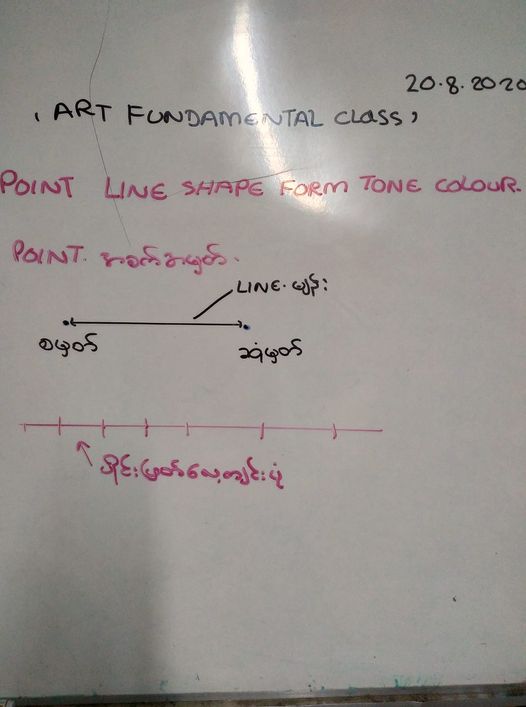 20.8.2020
‘ ART FUNDAMENTAL Class ’
POINT LINE SHAPE FORM TONE COLOUR.
POINT. အစက်အမှတ်.
LINE. မျဉ်း
စမှတ် ဆုံမှတ်
ပိုင်းဖြတ်လေ့ကျင်းပုံ